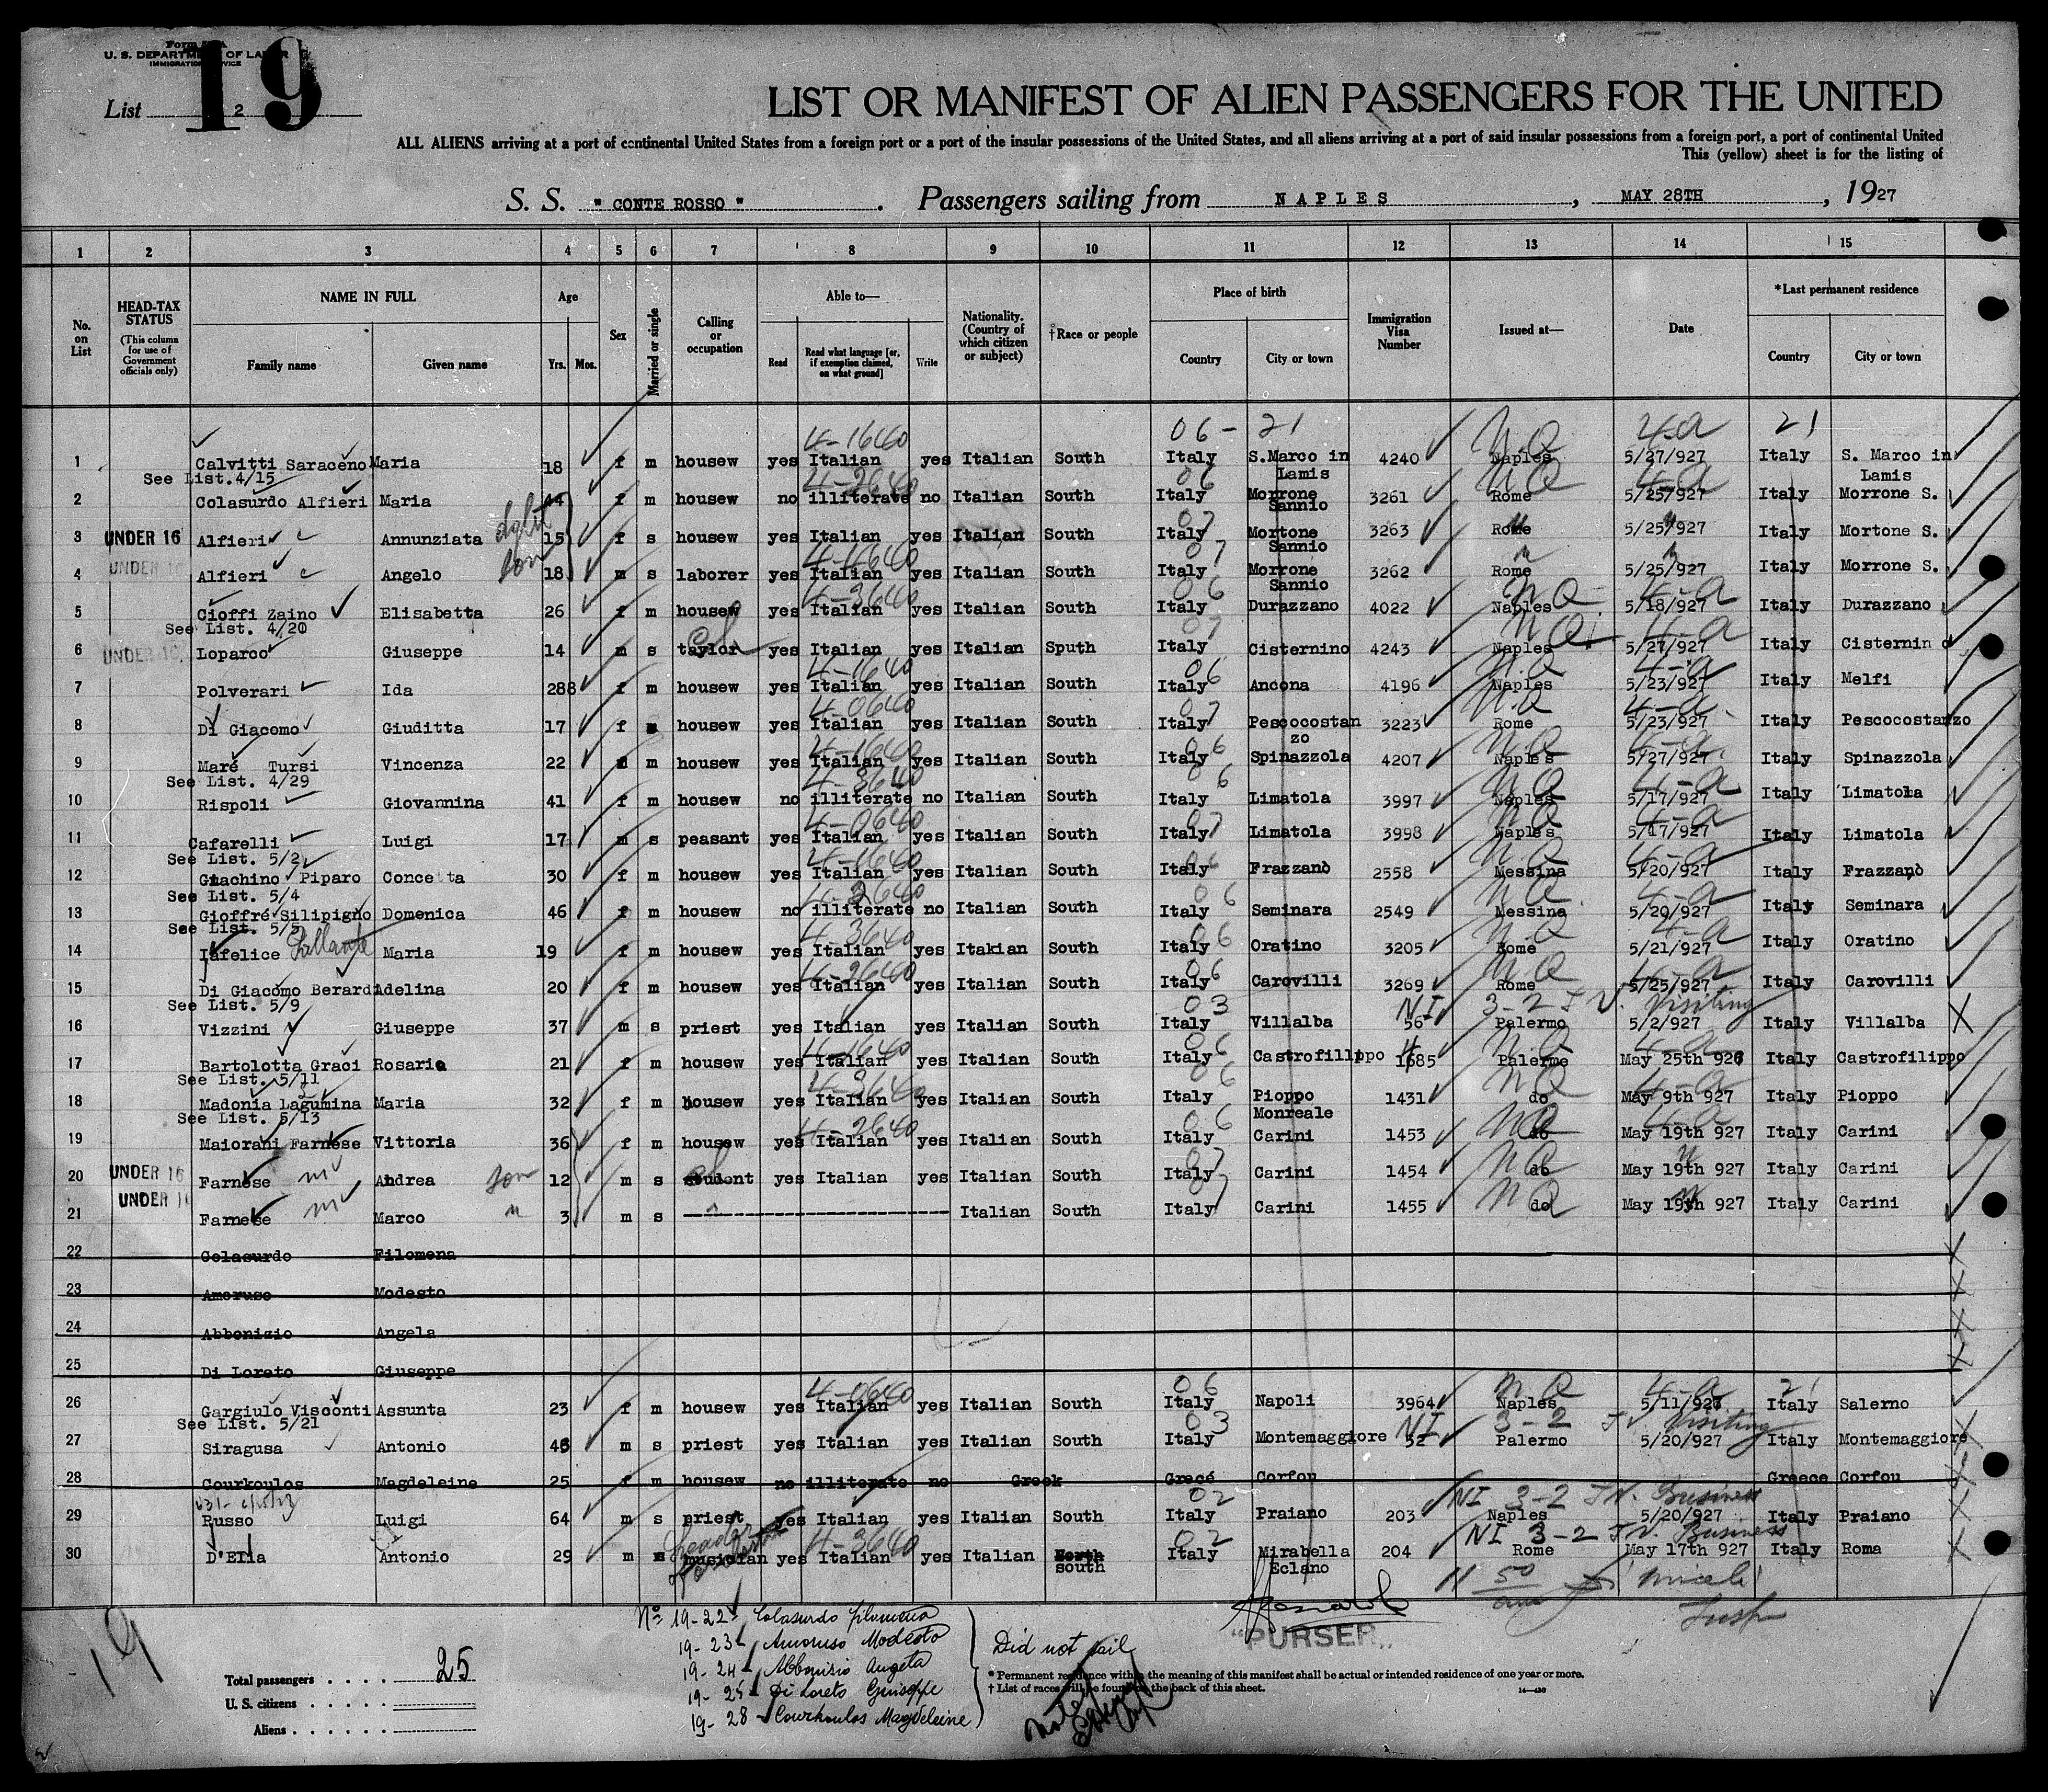 Form 500 A
U. S. DEPARTMENT OF LABOR
IMMIGRATION SERVICE
19
List 2
LIST OR MANIFEST OF ALIEN PASSENGERS FOR THE UNITED
ALL ALIENS arriving at a port of continental United States from a foreign port or a port of the insular possessions of the United States, and all aliens arriving at a port of said insular possessions from a foreign port, a port of continental United
This (yellow) sheet is for the listing of
S. S. " CONTE ROSSO " . Passengers sailing from NAPLES , MAY 28TH , 1927
1 2 3 4 5 6 7 8 9 10 11 12 13 14 15
No. on List
HEAD-TAX STATUS (This column for use of Government officials only)
NAME IN FULL Family name Given name
Age Yrs. Mos.
Sex
Married or single
Calling or occupation
Able to— Read Read what language [or, if exemption claimed, on what ground] Write
Nationality. (Country of which citizen or subject)
†Race or people
Place of birth Country City or town
Immigration Visa Number
Issued at—
Date
*Last permanent residence Country City or town
4-1640 06 - 21 NQ 4-a 21
1 Calvitti Saraceno Maria 18 f m housew yes Italian yes Italian South Italy S.Marco in Lamis 4240 Naples 5/27/927 Italy S. Marco in Lamis
See List.4/15
4-2640 06 NQ 4-a
2 Colasurdo Alfieri Maria 44 f m housew no illiterate no Italian South Italy Morrone Sannio 3261 Rome 5/25/927 Italy Morrone S.
07
3 UNDER 16 Alfieri Annunziata 15 f s housew yes Italian yes Italian South Italy Mortone Sannio 3263 Rome 5/25/927 Italy Mortone S.
4-1640 07
4 UNDER 16 Alfieri Angelo son 18 m s laborer yes Italian yes Italian South Italy Morrone Sannio 3262 Rome 5/25/927 Italy Morrone S.
4-3640 06 NQ 4-a
5 Cioffi Zaino Elisabetta 26 f m housew yes Italian yes Italian South Italy Durazzano 4022 Naples 5/18/927 Italy Durazzano
See List. 4/20
07 NQ 4-a
6 UNDER 16 Loparco Giuseppe 14 m s taylor yes Italian yes Italian Sputh Italy Cisternino 4243 Naples 5/27/927 Italy Cisternin o
4-1640 06 NQ 4-a
7 Polverari Ida 288 f m housew yes Italian yes Italian South Italy Ancona 4196 Naples 5/23/927 Italy Melfi
4-0640 07 NQ 4-a
8 Di Giacomo Giuditta 17 f s housew yes Italian yes Italian South Italy Pescocostan zo 3223 Rome 5/23/927 Italy Pescocostanzo
4-1640 06 NQ 4-a
9 Maré Tursi Vincenza 22 m housew yes Italian yes Italian South Italy Spinazzola 4207 Naples 5/27/927 Italy Spinazzola
See List. 4/29
4-3640 06 NQ 4-a
10 Rispoli Giovannina 41 f m housew no illiterate no Italian South Italy Limatola 3997 Naples 5/17/927 Italy Limatola
4-0640 07 NQ 4-a
11 Cafarelli Luigi 17 m s peasant yes Italian yes Italian South Italy Limatola 3998 Naples 5/17/927 Italy Limatola
See List. 5/2
4-1640 06 NQ 4-a
12 Giachino Piparo Concetta 30 f m housew yes Italian yes Italian South Italy Frazzanò 2558 Messina 5/20/927 Italy Frazzanò
See List. 5/4
4-2640 06 NQ 4-a
13 Gioffré Silipigno Domenica 46 f m housew no illiterate no Italian South Italy Seminara 2549 Messina 5/20/927 Italy Seminara
See List. 5/5
4-3640 06 NQ 4-a
14 Iafelice Maria 19 f m housew yes Italian yes Itakian South Italy Oratino 3205 Rome 5/21/927 Italy Oratino
4-2640 06 NQ 4-a
15 Di Giacomo Berardi Adelina 20 f m housew yes Italian yes Italian South Italy Carovilli 3269 Rome 5/25/927 Italy Carovilli
See List. 5/9
03 NI 3-2 T.V. Visiting
16 Vizzini Giuseppe 37 m s priest yes Italian yes Italian South Italy Villalba 56 Palermo 5/2/927 Italy Villalba
4-1640 06 NQ 4-a
17 Bartolotta Graci Rosaria 21 f m housew yes Italian yes Italian South Italy Castrofilippo 1685 Palermo May 25th 926 Italy Castrofilippo
See List. 5/11
4-3640 06 NQ 4-a
18 Madonia Lagumina Maria 32 f m housew yes Italian yes Italian South Italy Pioppo Monreale 1431 do May 9th 927 Italy Pioppo
See List. 5/13
4-2640 06 NQ 4-a
19 Maiorani Farnese Vittoria 36 f m housew yes Italian yes Italian South Italy Carini 1453 do May 19th 927 Italy Carini
07 NQ
20 UNDER 16 Farnese Andrea son 12 m s student yes Italian yes Italian South Italy Carini 1454 do May 19th 927 Italy Carini
07 NQ
21 UNDER 16 Farnese Marco " 3 m s Italian South Italy Carini 1455 do May 19th 927 Italy Carini
22 Colasurdo Filomena
23 Amoruso Modesto
24 Abbonizio Angela
25 Di Loreto Giuseppe
4-0640 06 NQ 4-a 21
26 Gargiulo Visconti Assunta 23 f m housew yes Italian yes Italian South Italy Napoli 3964 Naples 5/11/927 Italy Salerno
See List. 5/21
03 NI 3-2 T.V. Visiting
27 Siragusa Antonio 46 m s priest yes Italian yes Italian South Italy Montemaggiore 52 Palermo 5/20/927 Italy Montemaggiore
28 Courkoulos Magdeleine 25 f m housew no illiterate no Greek Grece Corfou Greece Corfou
02 NI 3-2 T.V. Business
29 Russo Luigi 64 m s priest yes Italian yes Italian South Italy Praiano 203 Naples 5/20/927 Italy Praiano
4-3640 02 NI 3-2 T.V. Business
30 D'Elia Antonio 29 m s musician Leader of orchestra yes Italian yes Italian North south Italy Mirabella Eclano 204 Rome May 17th 927 Italy Roma
19
Nº 19-22 Colasurdo filomena
19-23 Amoruso Modesto
19-24 Abbonisio Angela
19-25 Di Loreto Guiseppe
19-28 Courkoulos Magdeleine
Did not sail
"PURSER"
Total passengers . . . . 25
U. S. citizens . . . .
Aliens . . . . . .
* Permanent residence within the meaning of this manifest shall be actual or intended residence of one year or more.
† List of races will be found on the back of this sheet.